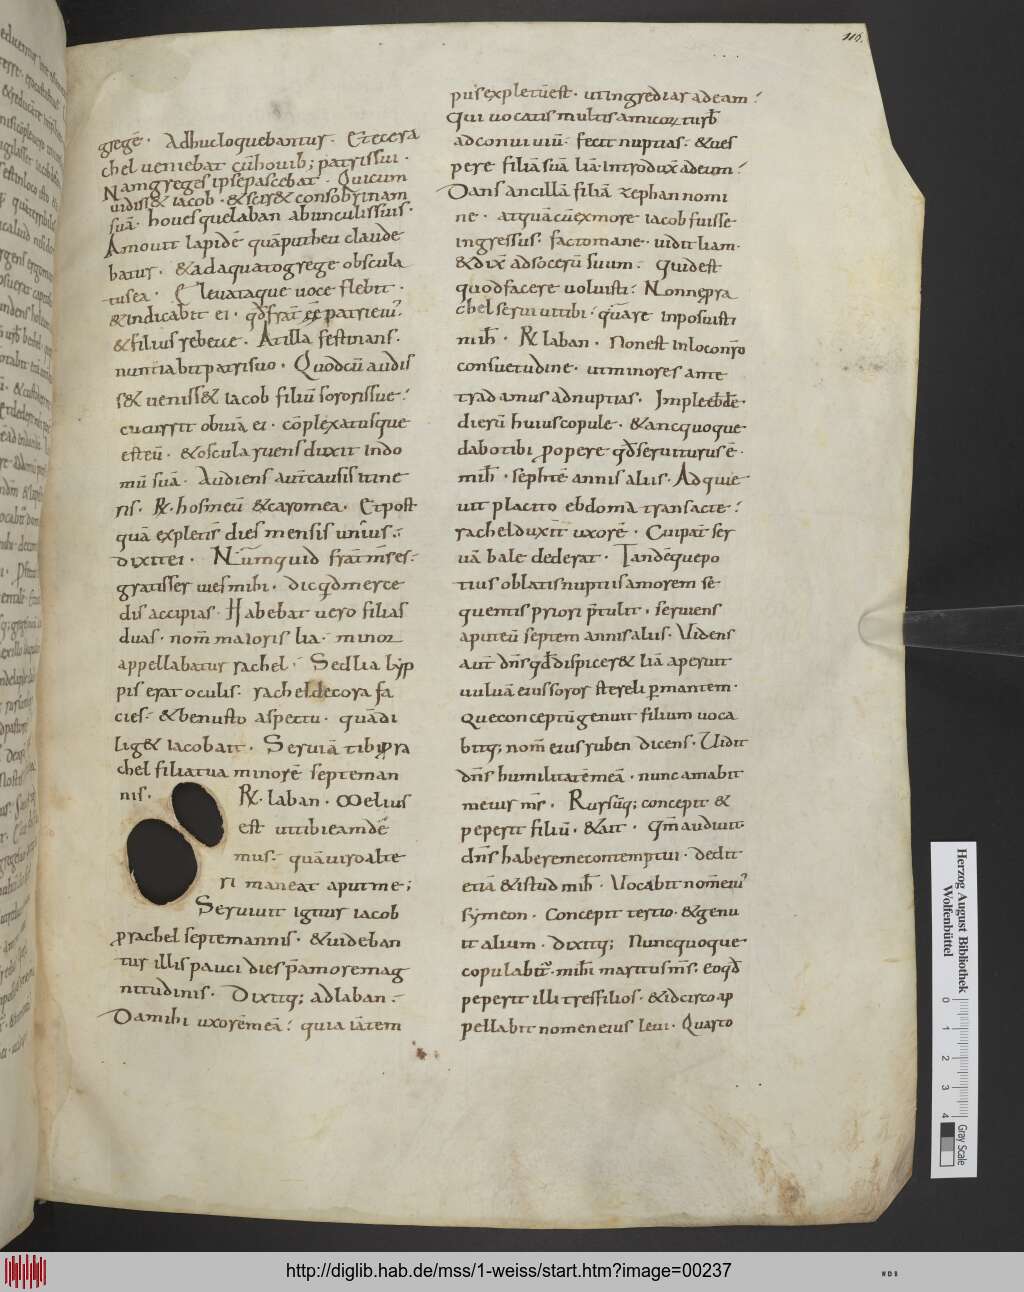 116.
gregē. Adhuc loquebantur. Et ecera
chel ueniebat cū houib; patrissui.
Nam greges ipse pascebat. Quicum
uidiss& iacob. & scis& consobrinam
suā. houesque laban abunculi ssuis.
Amouit lapidē quā putheu claude
batur. & adaquato grege obscula
tus ea. Eleuataque uoce flebit.
& indicabit ei. qđ frat̄ eē patreiu᷒
& filius rebecce. At illa festinans.
nuntiabit patri suo. Quod cū audis
s& uenisse& iacob filiū sororis sue:
cucurrit obuiā ei. cōplexatusque
est eū. & oscula ruens duxit in do
mū suā. Audiens aut̄ causis itine
ris. R̄. hos meū & caro mea. Et post
quā expletis dies mensis unius.
dixit ei. Numquid frat̄ ms̄ es:
gratis ser uies mihi. dic qđ merce
dis accipias. Habebat uero filias
duas. nom̄ maioris lia. minor
appellabatur rachel. Sed lia lyp
pis erat oculis: rachel decora fa
cies: & benusto aspectu. quā di
lig& iacob ait. Seruiā tibi p̄ ra
chel filia tua minorē septem an
nis. R̄. laban. Melius
est ut tibi eam dē
mus: quā uiro alte
ri maneat aput me;
Seruiuit igitur iacob
p rachel septem annis. & uideban
tur illis pauci dies p̄ amore mag
nitudinis. Dixitq; ad laban:
Da mihi uxorē meā: quia iā tem
pus expletū est. ut ingrediar ad eam:
Qui uocatis multis amicor̄ turb̄
ad conuiuiū: fecit nuptias. & ues
pere filiā suā liā. introdux̄ ad eum:
Dans ancillā filiā zephan nomi
ne. at quā cū ex more iacob fuisse
ingressus: facto mane. uidit liam.
& dix̄ ad socerū suum: Quid est
quod facere uoluisti: Nonne p ra
chel serui ui tibi. quāre inposuisti
mih̄. R̄ laban. Non est in loco nr̄o
consuetudine. ut minores ante
tradamus ad nuptias. Imple ebđē.
dierū huius copule. & anc quoque
dabo tibi p opere qđ seruiturus ē.
mih̄. septē annis aliis. Adquie
uit placito ebdoma transacte:
rachel duxit uxorē. Cui pat̄ ser
uā bale dederat. Tandē que po
tius oblatis nuptiis amorem se
quentis priori p̄tulit. seruiens
aput eū septem annis aliis. Videns
aut̄ dn̄s qđ dispicer& liā aperuit
uuluā eius soror stereli p̄mantem.
Que conceptū genuit filium uoca
bitq; nom̄ eius ruben dicens. Vidit
dn̄s humilitatē meā. nunc amabit
me uir ms̄. Rursūq; concepit &
peperit filiū. & ait. qm̄ audiuit
dn̄s habere me contemptui. dedit
etiā & istud mih̄. Vocabit nom̄ eiu᷒
symeon. Concepit tertio. & genu
it alium. dixitq; Nunc quoque
copulabit᷒. mih̄i maritus ms̄: eo qđ
peperit illi tres filios. & idcirco ap
pellabit nomen eius leui. Quarto
Herzog August Bibliothek
Wolfenbüttel
0 1 2 3 4
Gray Scale
http://diglib.hab.de/mss/1-weiss/start.htm?image=00237